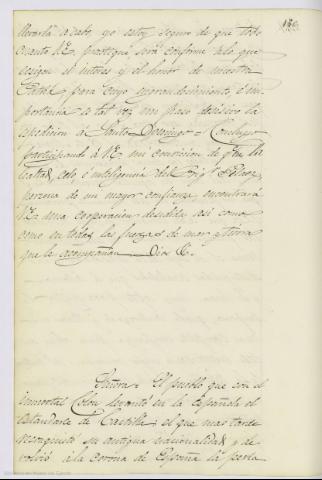 llevarla a cabo, yo estoy seguro de que todo
cuanto V.E. practique, será conforme a lo que
exigen el interés y el honor de nuestra
Patria para cuyo engrandecimiento é im
portancia es tal vez un paso decisivo la
espedicion á Santo Domingo = Concluyo
participando á V.E. mi conviccion de que en la
lealtad, celo é inteligencia del Brigr. Pelaez
persona de mi mayor confianza encontrará
V.E. una cooperacion decidida, asi como
como en todas las fuerzas de mar y tierra
que le acompañan = Dios &.
Señora = El pueblo que con el
inmortal Colon levantó en la Española el
estandarte de Castilla: el que mas tarde
reconquistó su antigua nacionalidad y de
volvió á la corona de España la perla